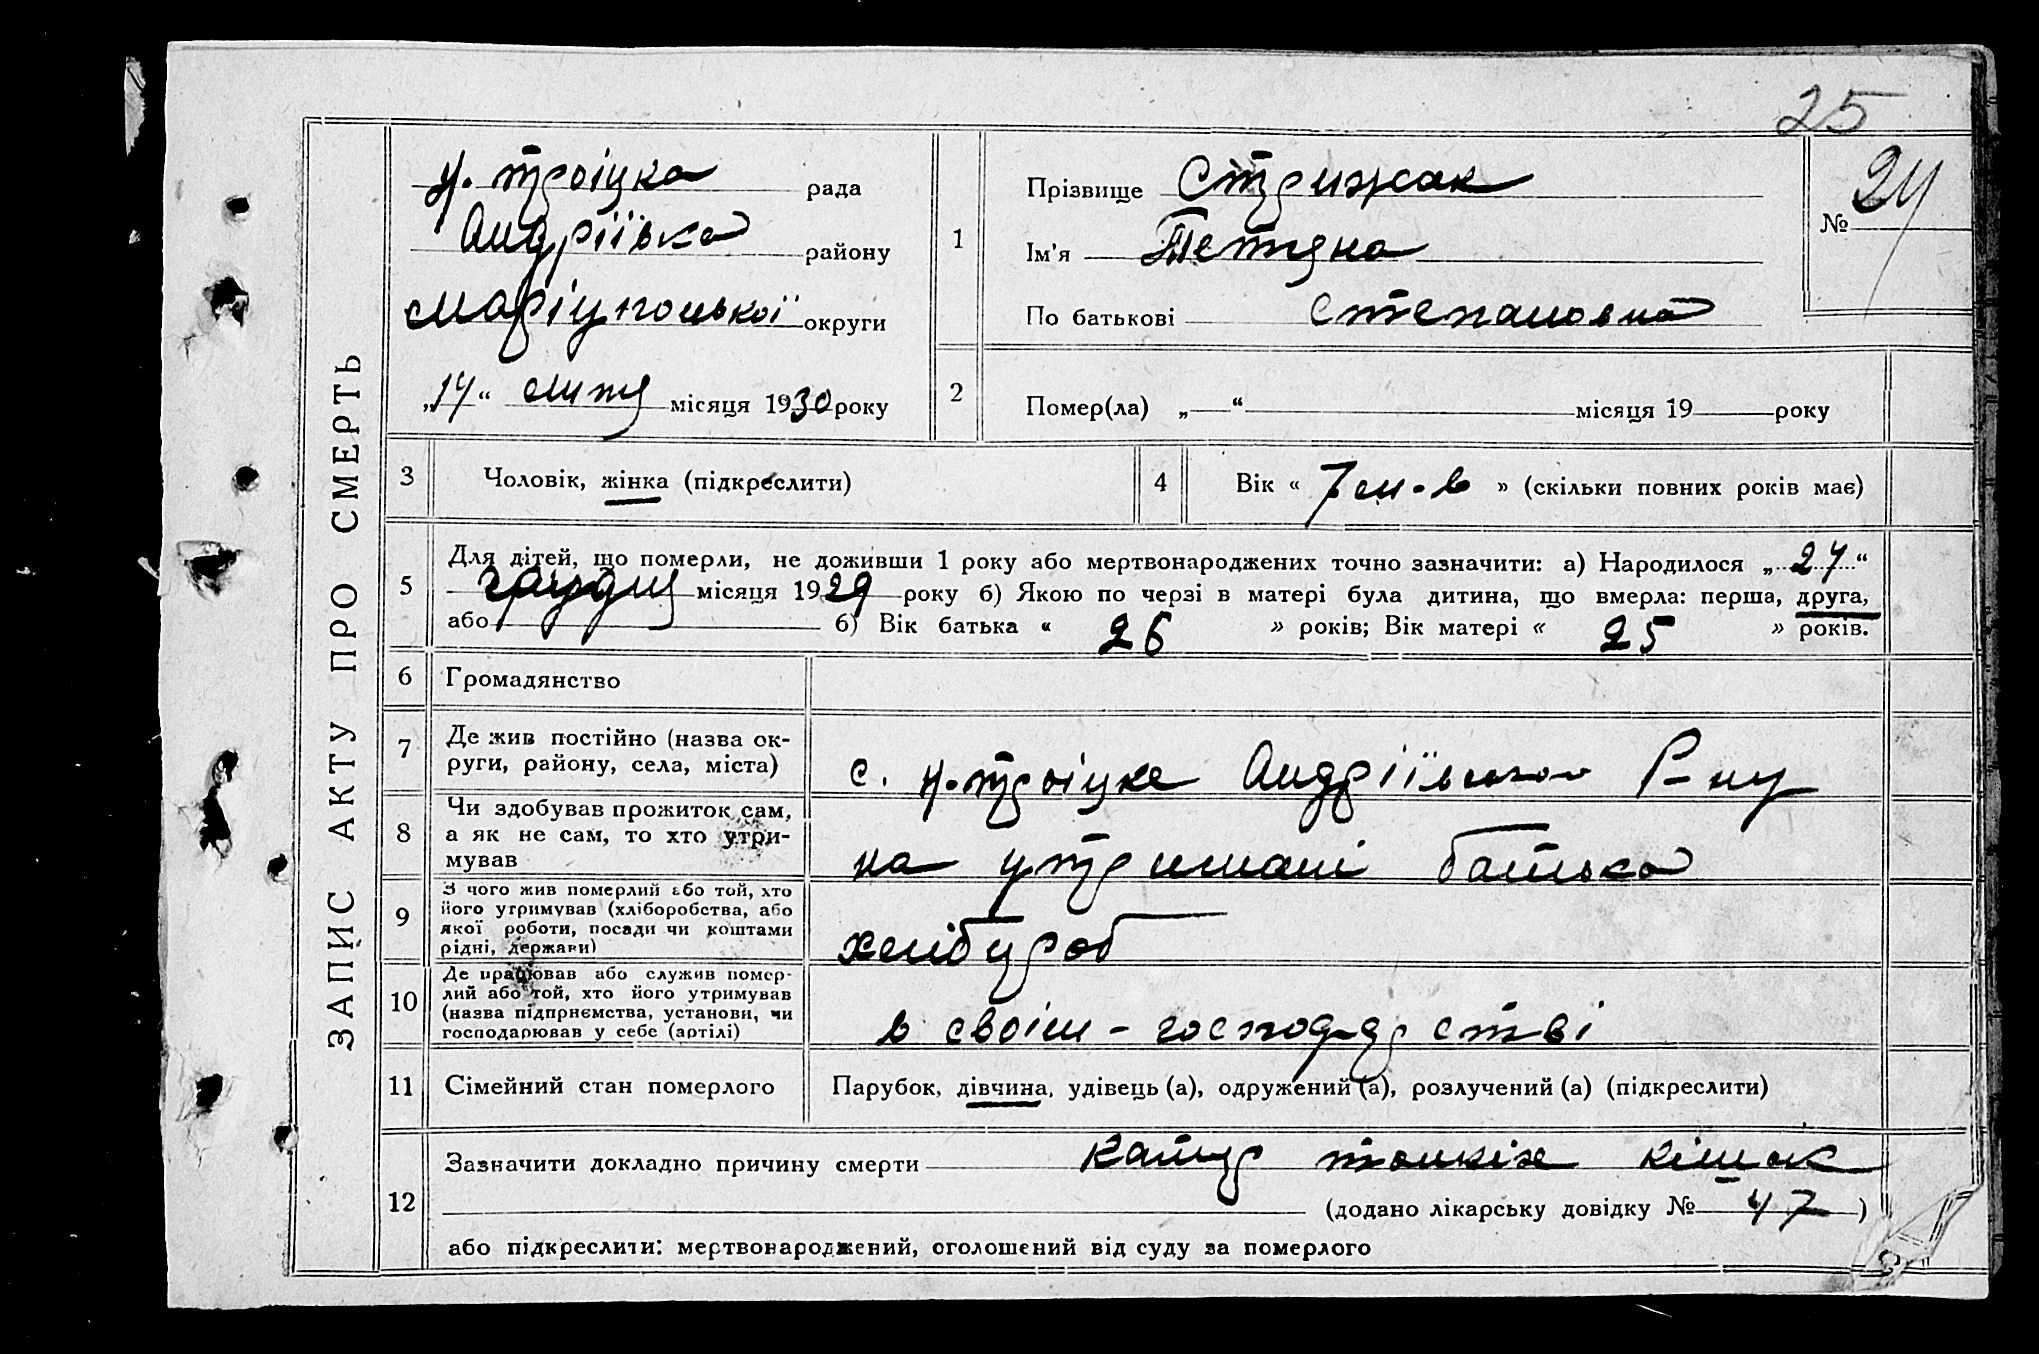 25
ЗАПИС АКТУ ПРО СМЕРТЬ
Н. Троіцка рада
Андріівка району
Маріупольскої округи
„14“ лютя місяця 1930 року
1
Прізвище Стрижак
Ім'я Тетяна
По батькові Степановна
№ 24
2
Помер(ла) „ “ місяця 19 року
3 Чоловік, жінка (підкреслити)
4 Вік « 7 м-в » (скільки повних років має)
5 Для дітей, що померли, не доживши 1 року або мертвонароджених точно зазначити: а) Народилося „27“
грудня місяця 1929 року б) Якою по черзі в матері була дитина, що вмерла: перша, друга,
або б) Вік батька « 26 » років; Вік матері « 25 » років.
6 Громадянство
7 Де жив постійно (назва ок-
руги, району, села, міста)
с. Н-Троіцке Андріївського Р-ну
8 Чи здобував прожиток сам,
а як не сам, то хто утри-
мував
на утримані батька
9 З чого жив померлий або той, хто
його утримував (хліборобства, або
якої роботи, посади чи коштами
рідні, держави)
хлібуроб
10 Де працював або служив помер-
лий або той, хто його утримував
(назва підприємства, установи, чи
господарював у себе (артілі)
в своім - господарстві
11 Сімейний стан померлого
Парубок, дівчина, удівець (а), одружений (а), розлучений (а) (підкреслити)
12 Зазначити докладно причину смерти Катар тонкіх кішок
(додано лікарську довідку № 47)
або підкреслити: мертвонароджений, оголошений від суду за померлого